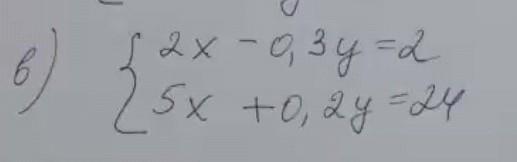 в) { 2x - 0,3y = 2
5x + 0,2y = 24